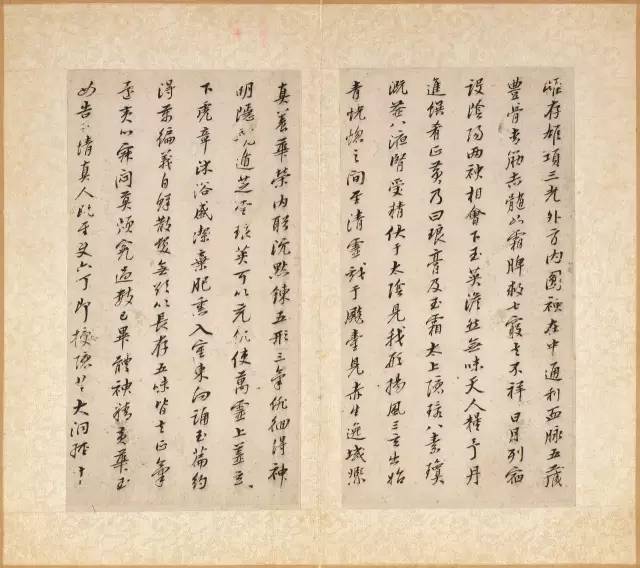 雌存雄項三光外方內圓神在中通利血脈五藏
豐骨青筋赤髓如霜脾救七竅去不祥日月列宿
設陰陽兩神相會下玉英澹然無味天人糧子丹
進饌肴正黃乃曰琅膏及玉霜太上隱環八素瓊
溉益八液腎受精伏于太陰見我形揚風三玄出始
青恍惚之間至清靈戲于飈臺見赤生逸域熙
真養華榮內盼沉默鍊五形三氣徘徊得神
明隱龍遁芝雲琅英可以充飢使萬靈上蓋玄玄
下虎章沐浴盛潔棄肥薰入室東向誦玉篇約
得萬徧義自鮮散髮無欲以長存五味皆至正氣
還夷心寂悶莫煩冤過數已畢體神精黃華玉
女告子情真人既至使六丁即授隱芝大洞經十